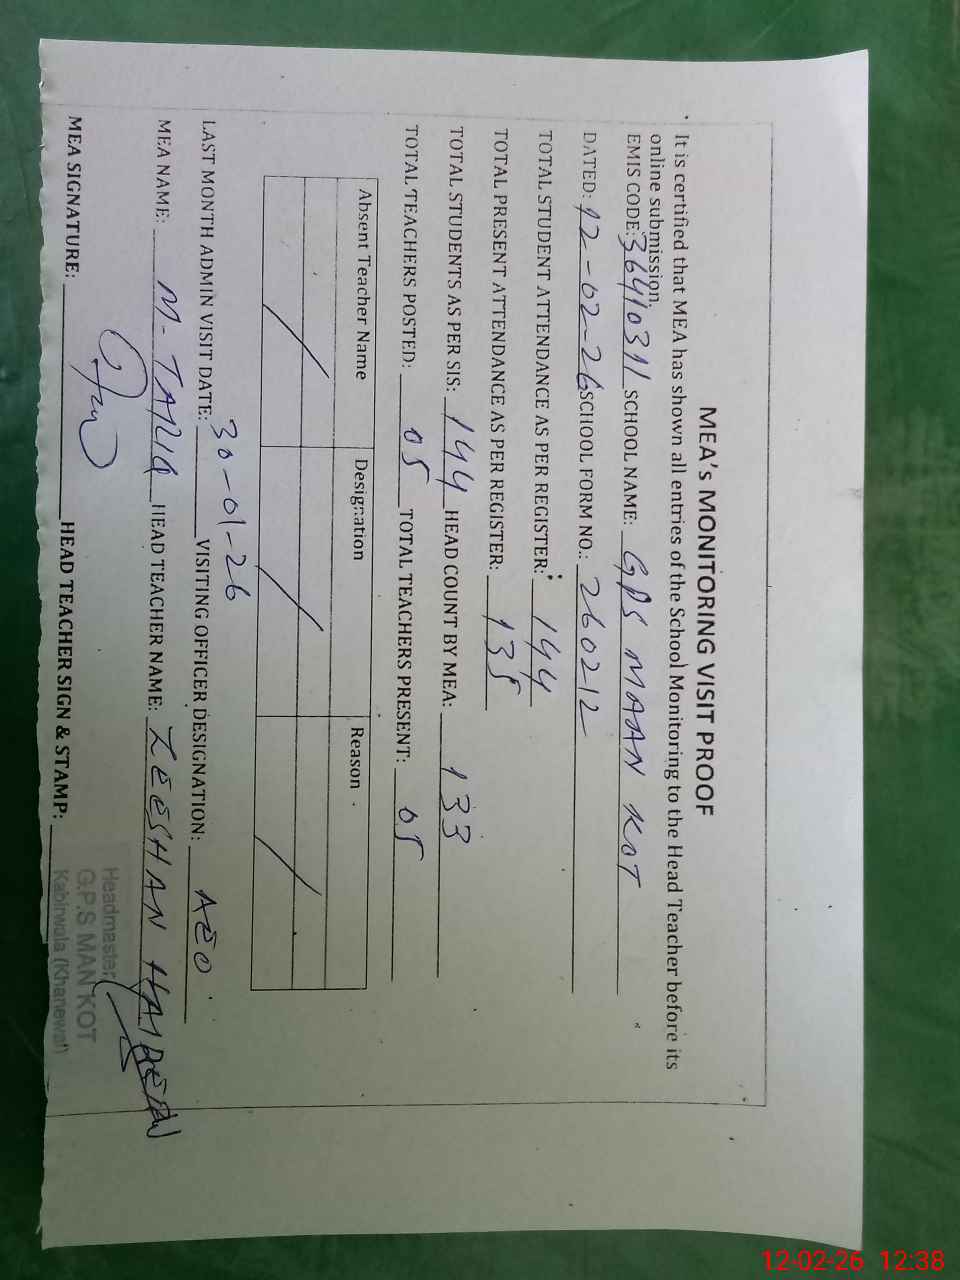 MEA's MONITORING VISIT PROOF
It is certified that MEA has shown all entries of the School Monitoring to the Head Teacher before its
online submission.
EMIS CODE: 36410311 SCHOOL NAME: GPS MAAN KOT
DATED: 12-02-26 SCHOOL FORM NO.: 260212
TOTAL STUDENT ATTENDANCE AS PER REGISTER: 144
TOTAL PRESENT ATTENDANCE AS PER REGISTER: 135
TOTAL STUDENTS AS PER SIS: 144 HEAD COUNT BY MEA: 133
TOTAL TEACHERS POSTED: 05 TOTAL TEACHERS PRESENT: 05
Absent Teacher Name Designation Reason
LAST MONTH ADMIN VISIT DATE: 30-01-26 VISITING OFFICER DESIGNATION: AEO
MEA NAME: M-TARIQ HEAD TEACHER NAME: ZEESHAN HAIDER
MEA SIGNATURE: HEAD TEACHER SIGN & STAMP:
Headmaster
G.P.S MAN KOT
Kabirwala (Khanewal)
12-02-26 12:38